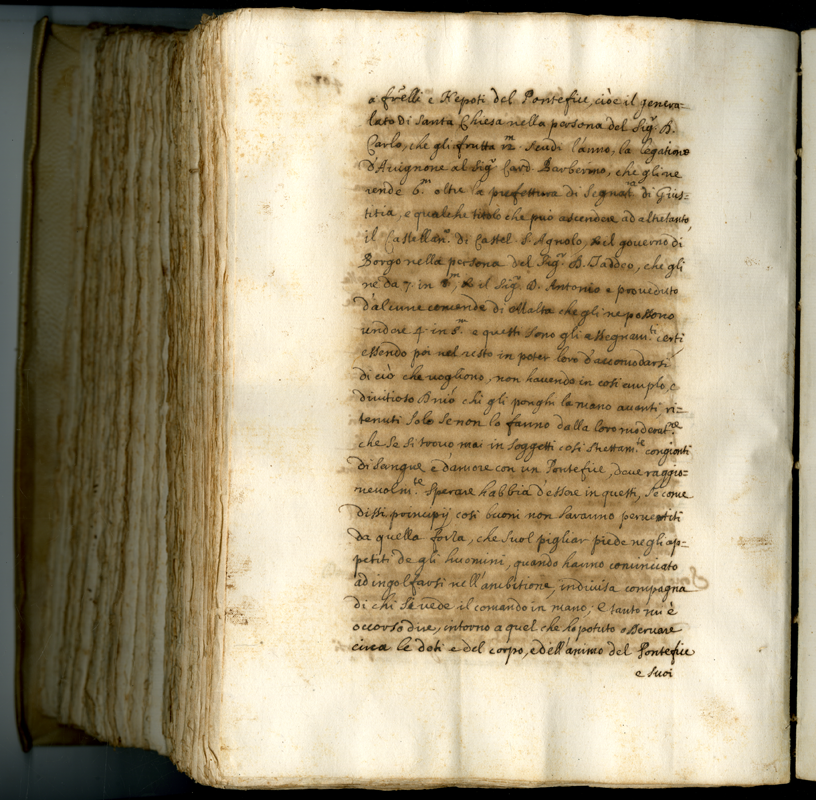 a frelli e Nepoti del Pontefice, cioè il genera=
lato di Santa Chiesa nella persona del Sigr. D.
Carlo, che gli frutta 12m. Scudi l'anno, la legatione
d'Avignone al Sigr. Card. Barberino, che gli ne
rende 6m. oltre la prefettura di Segnatra di Gius=
titia, e qualche titolo che può ascendere ad altretanto,
il Castellano. di Castel S. Agnolo, & il governo di
Borgo nella persona del Sigr. D. Taddeo, che gli
ne da 7. in 8m, & il Sigr. D. Antonio e proveduto
d'alcune comende di Malta che gli ne possono
rendere 4. in 5m. e questi sono gli assegnam.ti certi
essendo poi nel resto in poter loro d'accomodarsi
di ciò che vogliono, non havendo in così amplo, e
divitioso chi gli ponghi la mano avanti, ri=
tenuti solo se non lo fanno dalla loro moderat.ne
che se si trovò mai in soggetti così strettam.te congionti
di sangue e d'amore con un Pontefice, dove raggio=
nevolm.te sperare habbia d'essere in questi, se come
dissi principij così buoni non saranno pervertiti
da quella forza, che suol pigliar piede negli ap=
petiti de gli huomini, quando hanno cominciato
ad ingolfarsi nell'ambitione, indivisa compagna
di chi si vede il comando in mano; E tanto mi è
occorso dire, intorno a quel che hò potuto osservare
circa le doti e del corpo, e dell'animo del Pontefice
e suoi